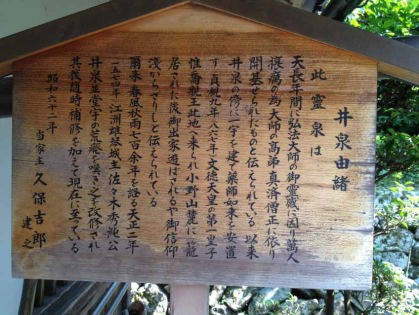 井泉由緒
此霊泉は
天長年間に弘法大師の御霊蔵に因り萬人
授福の為大師の高弟真済僧正に依り
開基せられたものと伝えられている 以来
井泉の傍に一宇を建て薬師如来を安置
す 貞観九年八六七年文徳天皇の第一皇子
惟喬親王此地へ来られ小野山麓に篭
居された後御出家遊ばれるや御信仰
浅からずりしと伝えられている
爾来 春風秋雨六百余年を経る天正二年
一五七四年 江洲雄琴城主佐々木秀純公
井泉並堂宇の荒廃を嘆き之を改修され
其後随時補修を加えて現在に至っている
昭和六十二年
当家主 久保吉郎
建之